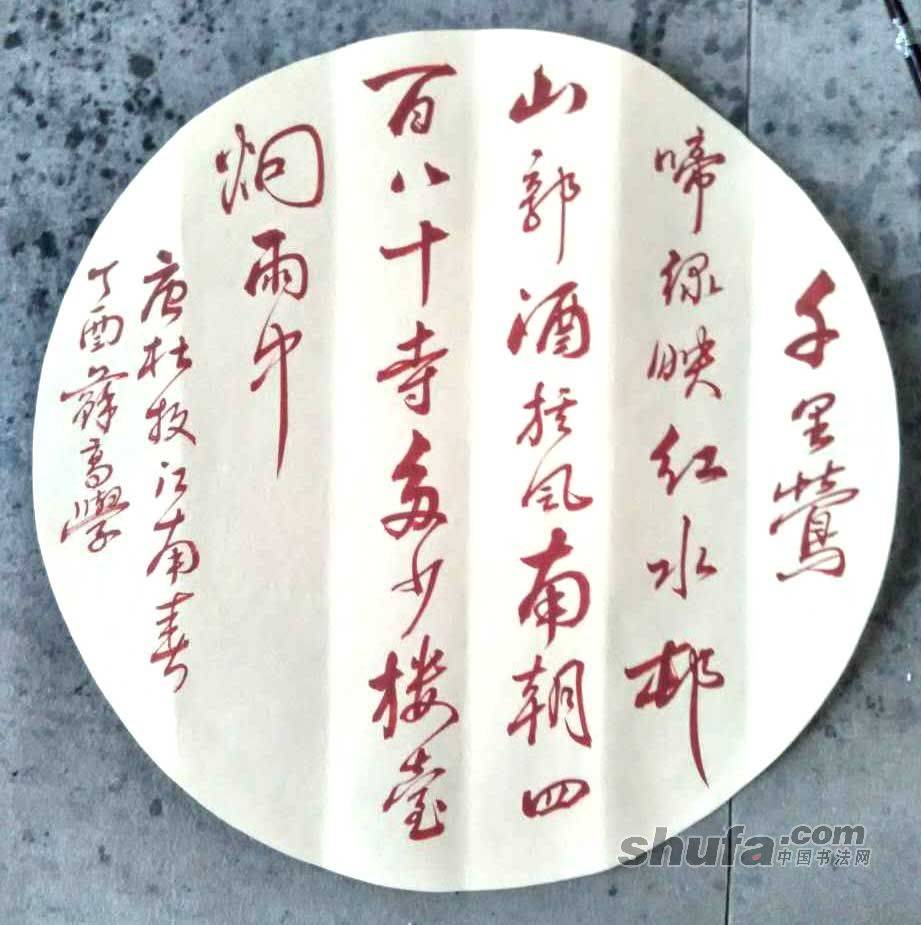 千里莺
啼绿映红水邨
山郭酒旗风南朝四
百八十寺多少楼臺
烟雨中
唐杜牧江南春
丁酉薛高學
shufa.com
中国书法网